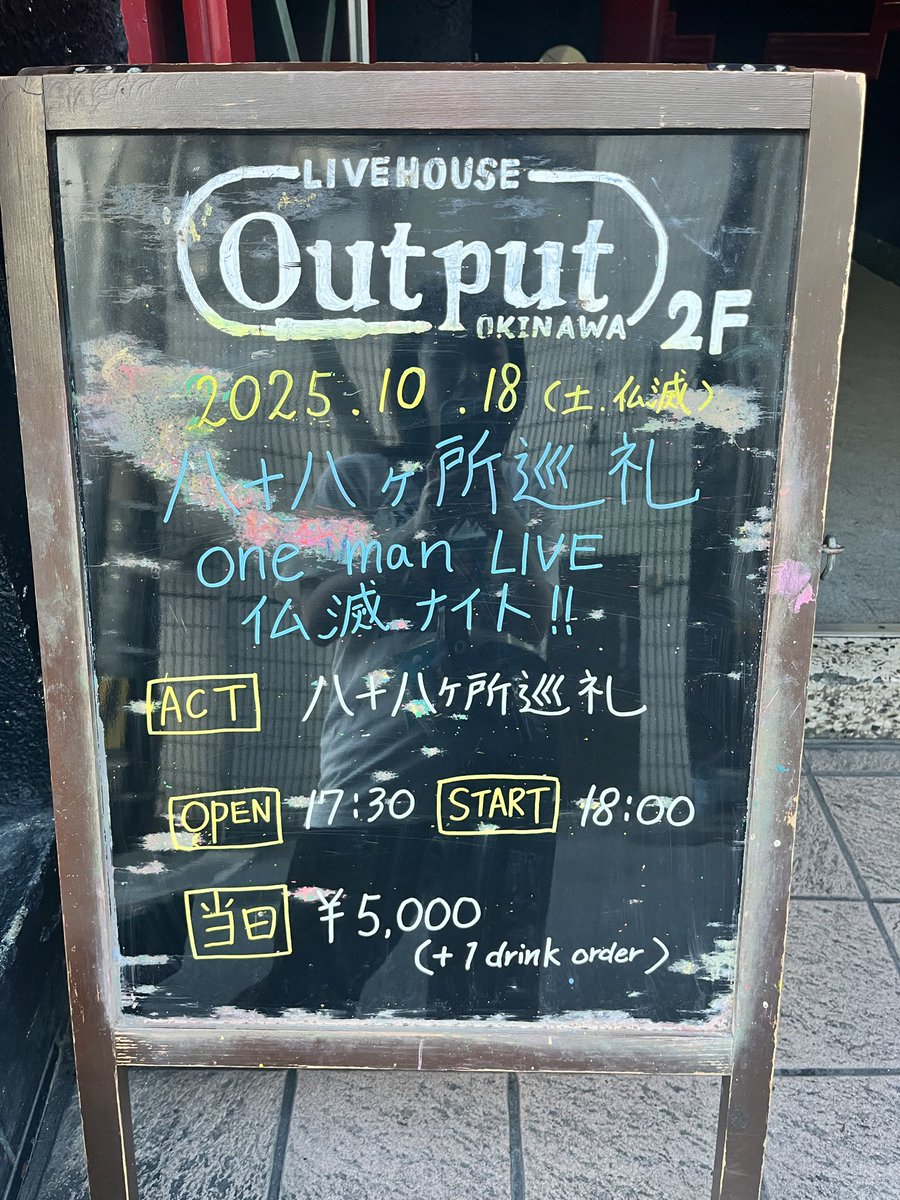 LIVEHOUSE
Output
OKINAWA 2F
2025.10.18(土.仏滅)
八十八ヶ所巡礼
one man LIVE
仏滅ナイト!!
ACT 八十八ヶ所巡礼
OPEN 17:30 START 18:00
当日 ¥5,000
(+1 drink order)